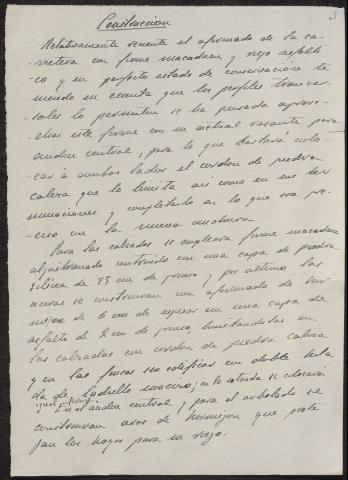 3
Construccion
Relativamente reciente el afirmado de la ca-
rretera con firme macadam y riego asfalti-
co y en perfecto estado de conservación te
niendo en cuenta que los perfiles transver-
sales lo permiten se ha pensado aprove-
char este firme con su actual rasante para
anden central, para lo que bastará colo-
car á ambos lados el cordon de piedra
caliza que lo limita asi como en sus ter
minaciones y completarlo en lo que sea pre-
ciso en la nueva anchura.
Para las calzadas se empleara firme macadam
alquitranado construido con una capa de piedra
silicea de 25 cm de grueso y por ultimo las
aceras se construiran con afirmado de hor
migon de 6 cm de espesor con una capa de
asfalto de 2 cm de grueso, limitandolas en
las calzadas con cordon de piedra caliza
y en las fincas sin edificar con doble hila
da de ladrillo macizo; en la rotonda se colocará
igual
En el anden central y para el arbolado se
construiran aros de hormigon que prote
jan los hoyos para su riego.